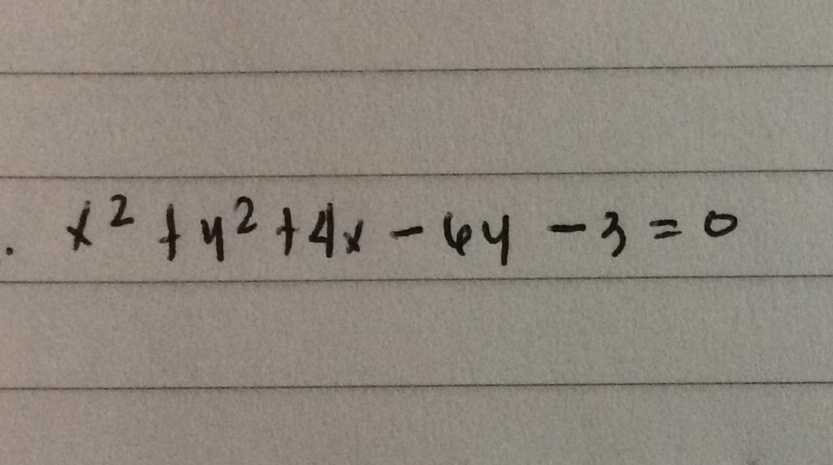 . x² + y² + 4x - 6y - 3 = 0